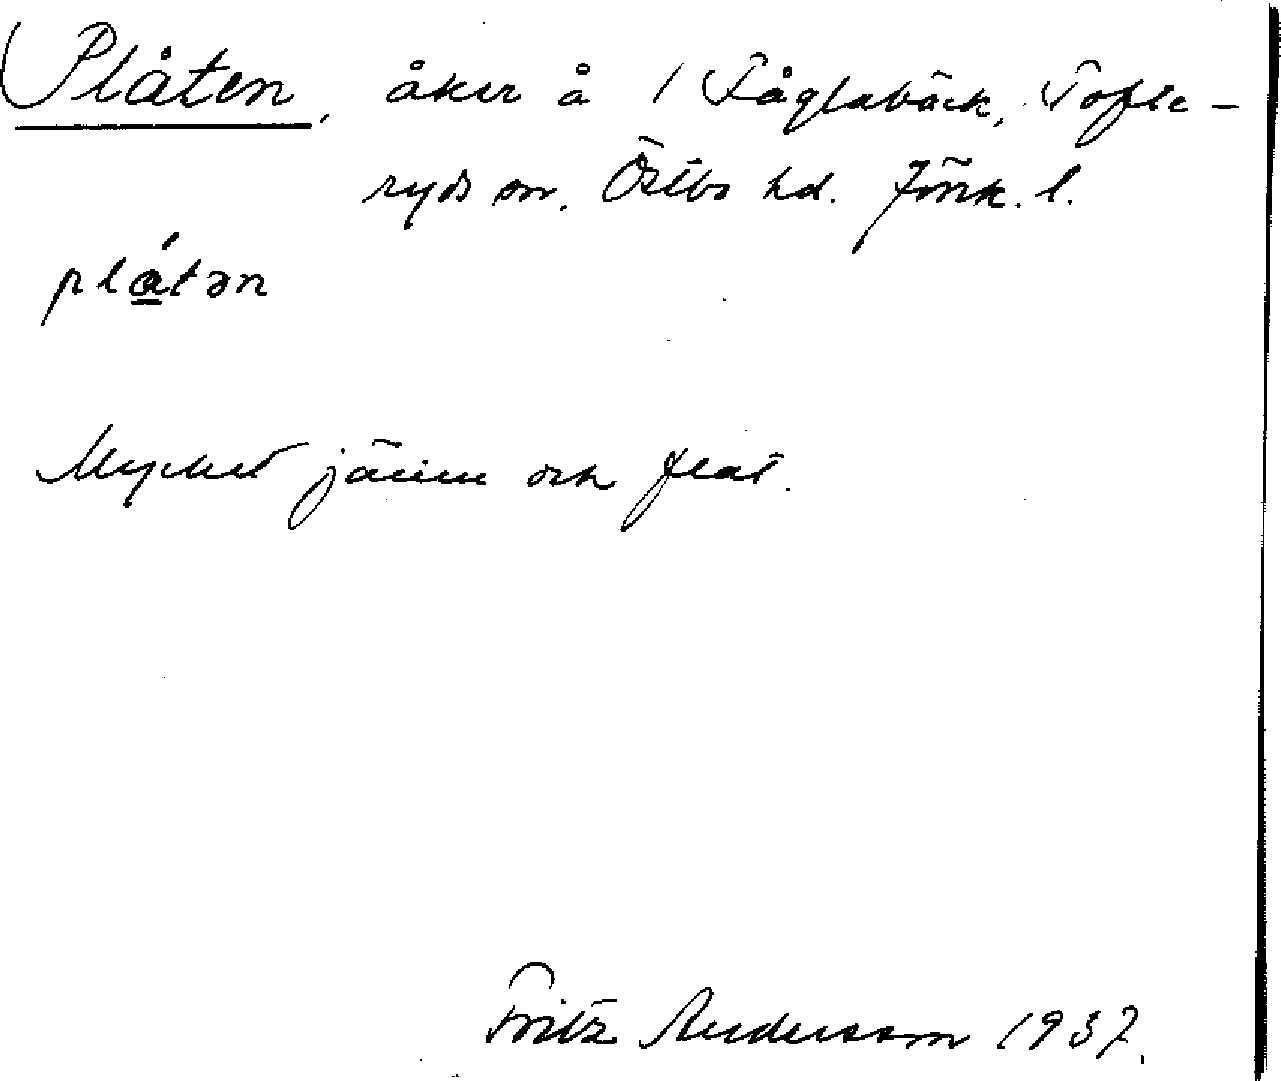 Plåten, åker å 1 Fåglabäck, Tofte-
ryds sn. Östbo hd. Jönk. l.
plåtən
Mycket jämn och flat.
Fritz Andersson 1937.